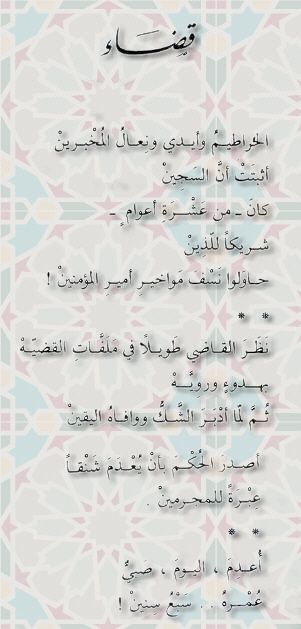 قَضَاء
الخراطيمُ وأيدي ونِعالُ المُخْبرينْ
أثبتَتْ أنَّ السَجينْ
كانَ ـ من عَشْرَةِ أعوامٍ ـ
شريكاً للّذِينْ
حاوَلوا نَسْفَ مَواخيرِ أميرِ المؤمنينْ !
* *
نَظَرَ القاضي طَويلاً في مَلَفَّاتِ القضيّهْ
بهدوءٍ ورويَّهْ
ثُمَّ لمّا أدْبَرَ الشَّكُّ ووافاهُ اليقينْ
أصدرَ الحُكْمَ بأنْ يُعْدَمَ شَنْقاً
عِبْرَةً للمجرمينْ .
* *
أُعدِمَ ، اليومَ ، صبيٌّ
عُمْرهُ . . سَبْعُ سِنينْ !